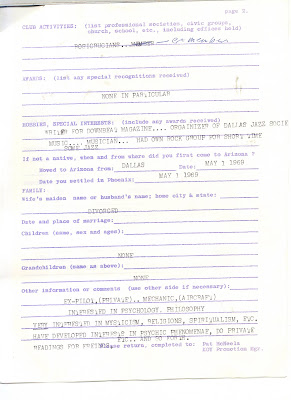 page 2.
CLUB ACTIVITIES: (list professional societies, civic groups,
church, school, etc., including offices held)
ROSICRUCIANS..
AWARDS: (list any special recognitions received)
NONE IN PARTICULAR
HOBBIES, SPECIAL INTERESTS: (include any awards received)
WRITER FOR DOWNBEAT MAGAZINE.... ORGAINIZER OF DALLAS JAZZ SOCIE
MUSIC.. MUSICIAN... HAD OWN ROCK GROUP FOR SHORT TIME
SOME JAZZ
If not a native, when and from where did you first come to Arizona ?
Moved to Arizona from: DALLAS Date: MAY 1 1968
Date you settled in Phoenix: MAY 1 1968
FAMILY:
Wife's maiden name or husband's name; home city & state:
DIVORCED
Date and place of marriage:
Children (name, sex and ages):
NONE
Grandchildren (name as above):
NONE
Other information or comments (use other side if necessary):
EX-PILOT,(PRIVATE).. MECHANIC,(AIRCRAFT)
INTERESTED IN PSYCHOLOGY. PHILOSOPHY
VERY INTERESTED IN MYSTICISM, RELIGIONS, SPIRITUALISM, ETC.
HAVE DEVELOPED INTERESTS IN PSYCHIC PHENOMENAE, DO PRIVATE
ETC.. AND SO FORTH.
READINGS FOR FRIENDS. Please return, completed to: Pat McNeela
KOY Promotion Mgr.